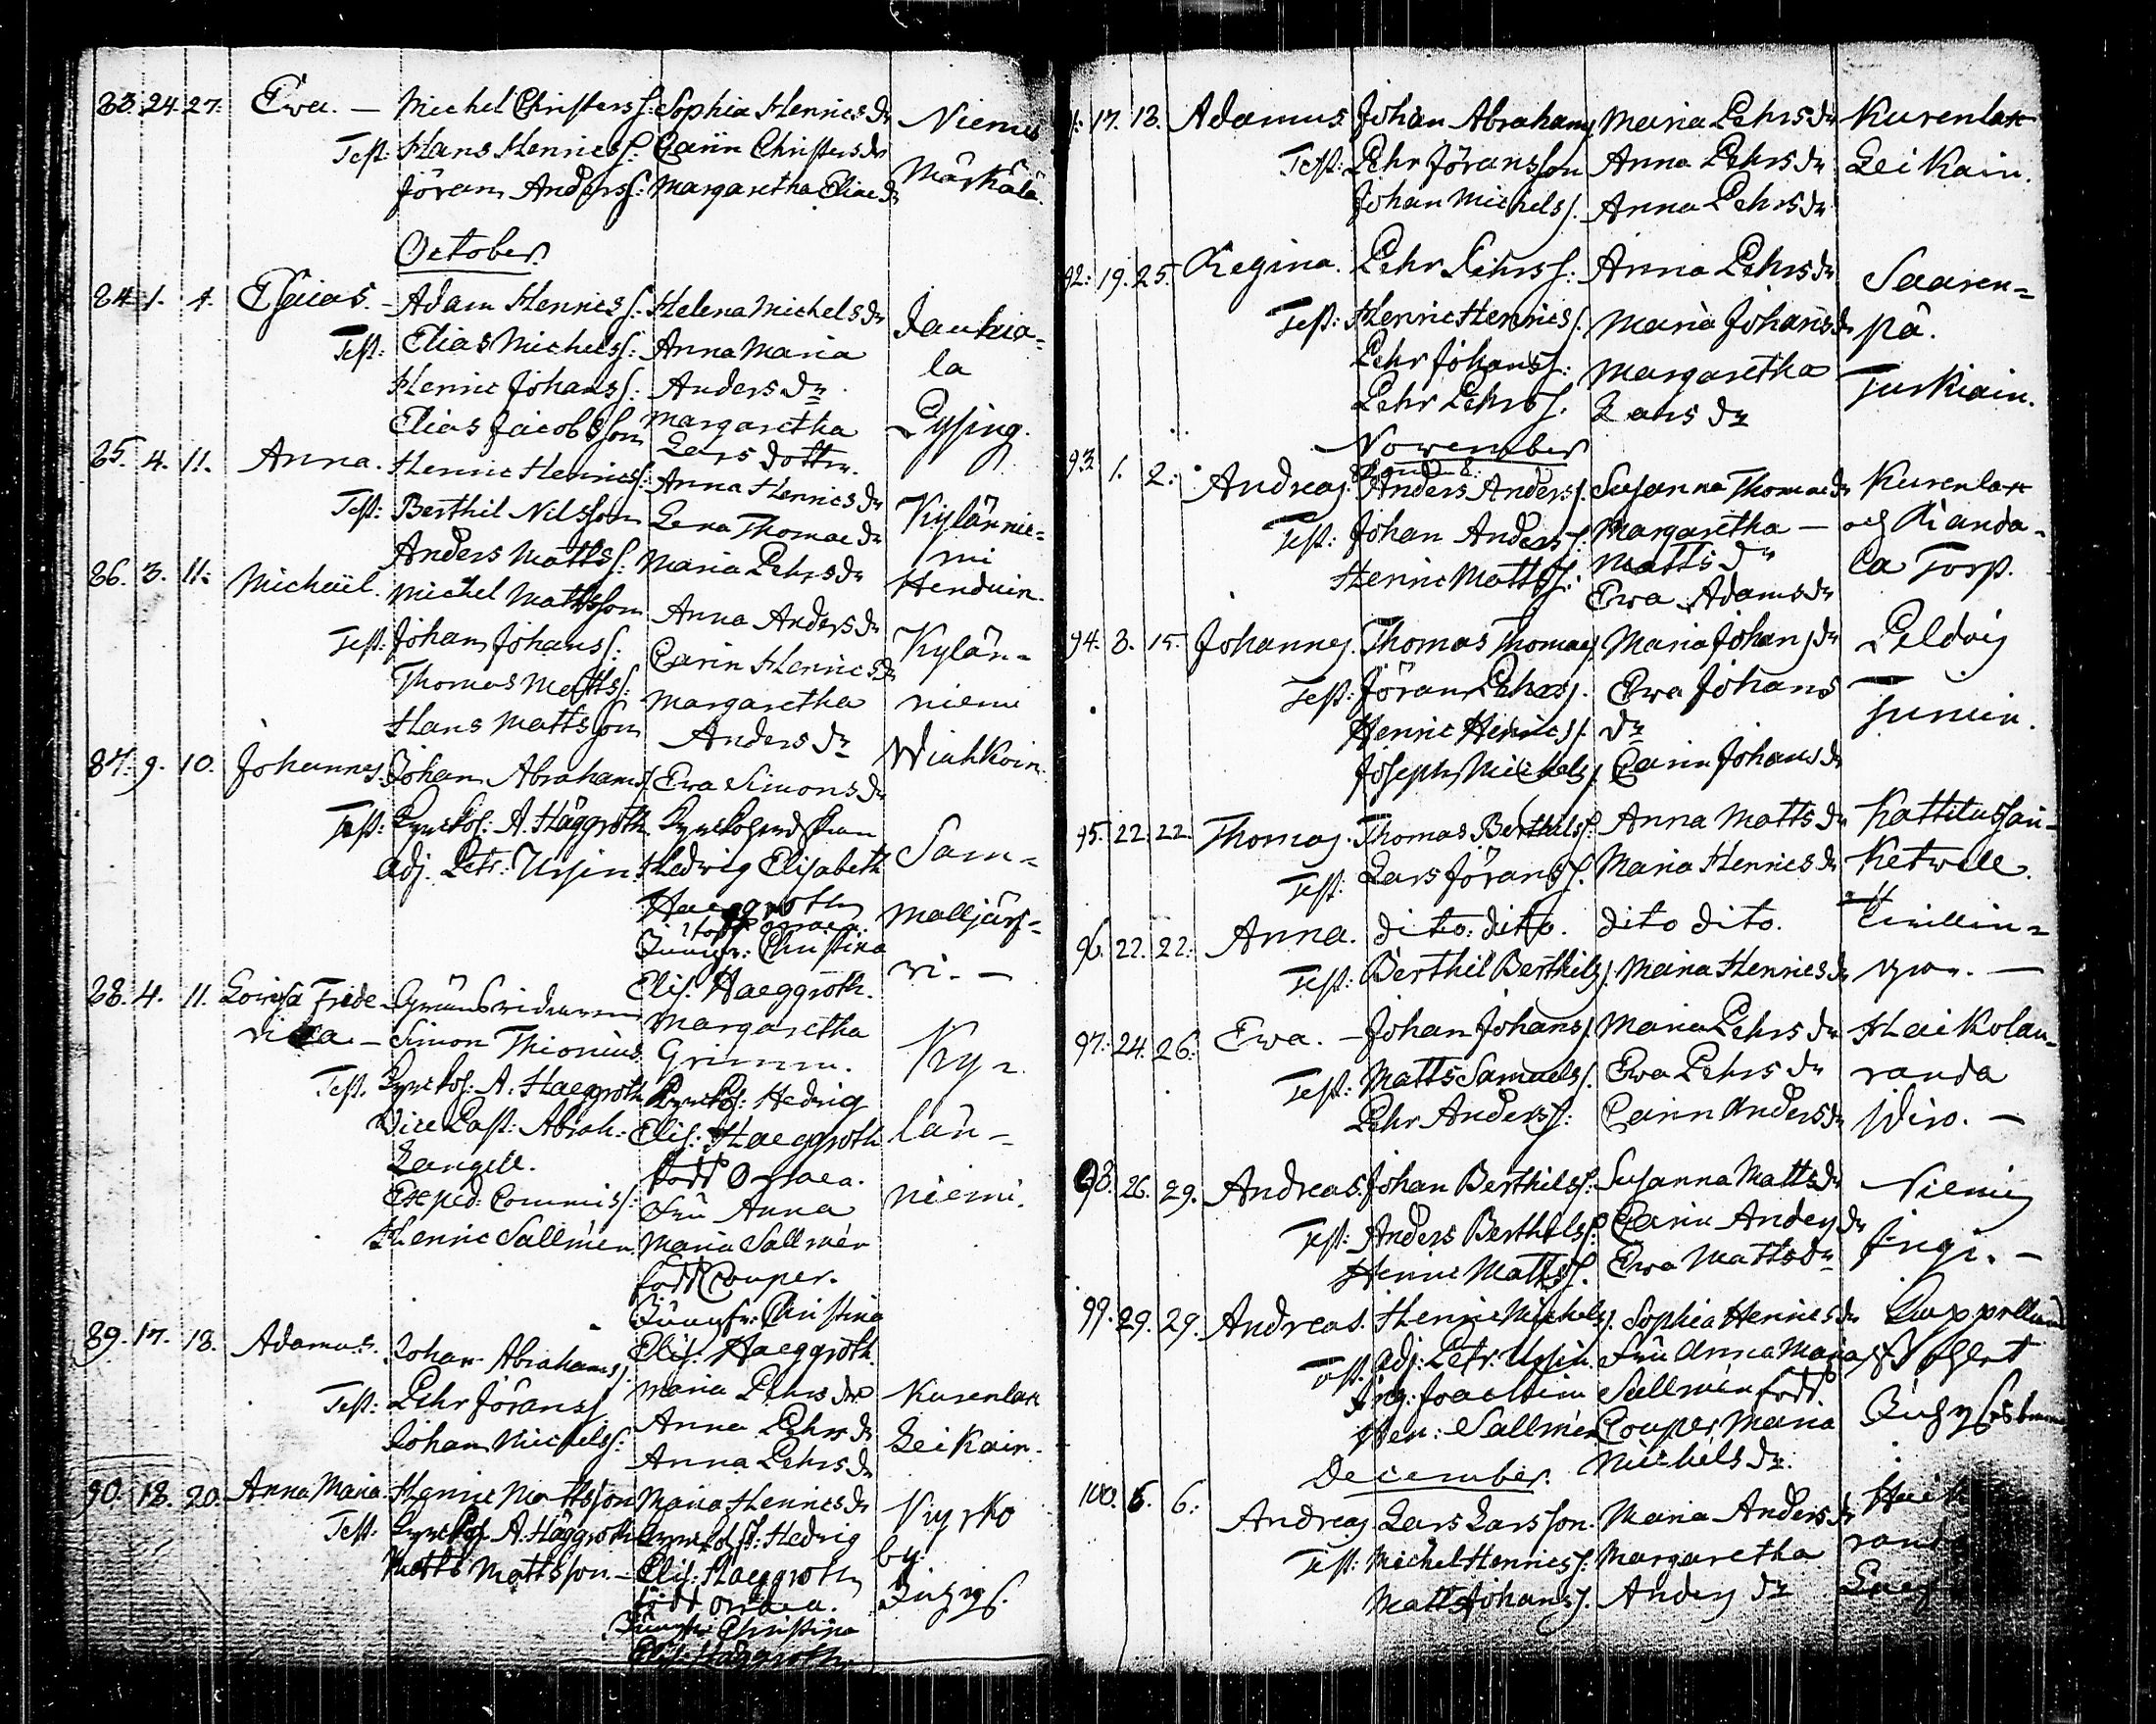 83. 24. 27. Ewa. — Michel Christerss: Sophia Henricsdr Niemis
Test: Hans Henricss: Carin Christersdr
Jöran Anderss: Margaretha Eliaedr Märkälä.
October
84. 1. 4. Esaias. - Adam Henricss: Helena Michelsdr Jaukia=
Test: Elias Michelss: Anna Maria la
Henric Johanss: Andersdr
Elias Jacobsson Margaretha Pysing.
Larsdotter.
85. 4. 11. Anna. Henric Henricss: Anna Henricsdr Kylännie=
Test: Berthil Nilsson Lena Thomaedr mi
Anders Mattss: Maria Pehrsdr Henduin.
86. 3. 11: Michaël. Michel Mattsson Anna Andersdr
Test: Johan Johanss: Carin Henricsdr Kylän=
Thomas Mattss: Margaretha niemi
Hans Mattsson Andersdr Wiahkoin.
87. 9. 10. Johannes. Johan Abrahamss. Ewa Simonsdr
Test: Kyrckoh: A. Häggroth Sam=
Adj. Petr: Ursin Hedwig Elisabeth
Haeggroth malljärf=
Jungfr: Christina
Elis. Haeggroth. wi. —
88. 4. 11. Lovisa Fride- Gränsridaren Margaretha
rica — Simon Thionius Grimm. Ky=
Test. Kyrckoh: A. Haeggroth Kyrckoh: Hedvig
Vice Past: Abrah: Elis: Haeggroth län=
Langell. född Orraea.
Exped: Commiss: Fru Anna niemi.
Henric Sallmén Maria Sallmén
född Couper.
Jungfr: Christina
Elis: Haeggroth.
89. 17. 18. Adamus. Johan Abrahamss. Maria Pehrsdr Kurenlax
Test: Pehr Jöranss. Anna Pehrsdr
Johan Michelss: Anna Pehrsdr Leikain.
90. 18. 20. Anna Maria Henric Mattsson Maria Henricsdr Kyrko
Test. Kyrckoh. A. Häggroth Hedvig by.
Matts Mattsson. — Elis: Haeggroth
född Orraea.
Jungfr: Christina
Elis: Häggroth.
17. 18. Adamus Johan Abrahams Maria Pehrsdr Kurenlax
Test: Pehr Jöransson Anna Pehrsdr Leikain.
Johan Michelss. Anna Pehrsdr
92: 19. 25. Regina. Pehr Pehrss: Anna Pehrsdr Saaren=
Test: Henric Henricss. Maria Johansdr pä.
Pehr Johanss: Margaretha Turkiain.
Pehr Pehrss. Larsdr
November
93. 1. 2: Andreas. Anders Anderss. Susanna Thomaedr Kurenlax
Test: Johan Anderss: Margaretha — och Randa-
Henric Mattss: Mattsdr la Torp.
Ewa Adamsdr
94. 3. 15. Johannes. Thomas Thomaes. Maria Johansdr Peldoig
Test: Jöran Pehrss. Ewa Johans
Henric Henricss. dr Junein.
Joseph Michelss. Carin Johansdr
95. 22. 22. Thomas. Thomas Berthilss: Anna Mattsdr Kattelussari-
Test: Lars Jöranss. Maria Henricsdr Ketwell.
96. 22. 22: Anna. dito: dito. dito dito.
Test: Berthil Berthilss. Maria Henricsdr
97. 24. 26. Ewa. — Johan Johanss. Maria Pehrsdr Haikolan=
Test: Matts Samuelss. Ewa Pehrsdr randa
Pehr Anderss: Carin Andersdr
98. 26. 29. Andreas. Johan Berthilss: Susanna Mattsdr Niemis
Test: Anders Berthilss: Carin Andersdr
Henric Mattss. Ewa Mattsdr Jngi. —
99. 29. 29. Andreas. Henric Michelss. Sophia Henricsdr
Test. Adj: Petr. Ursin. Fru Anna Maria
Joachim Sallmén född
Hen: Sallmén Couper, Maria
Michelsdr.
December.
100. 6. 6: Andreas Lars Larsson. Maria Andersdr Haik
Test: Michel Henricss: Margaretha rand
Matts Johanss. Andersdr